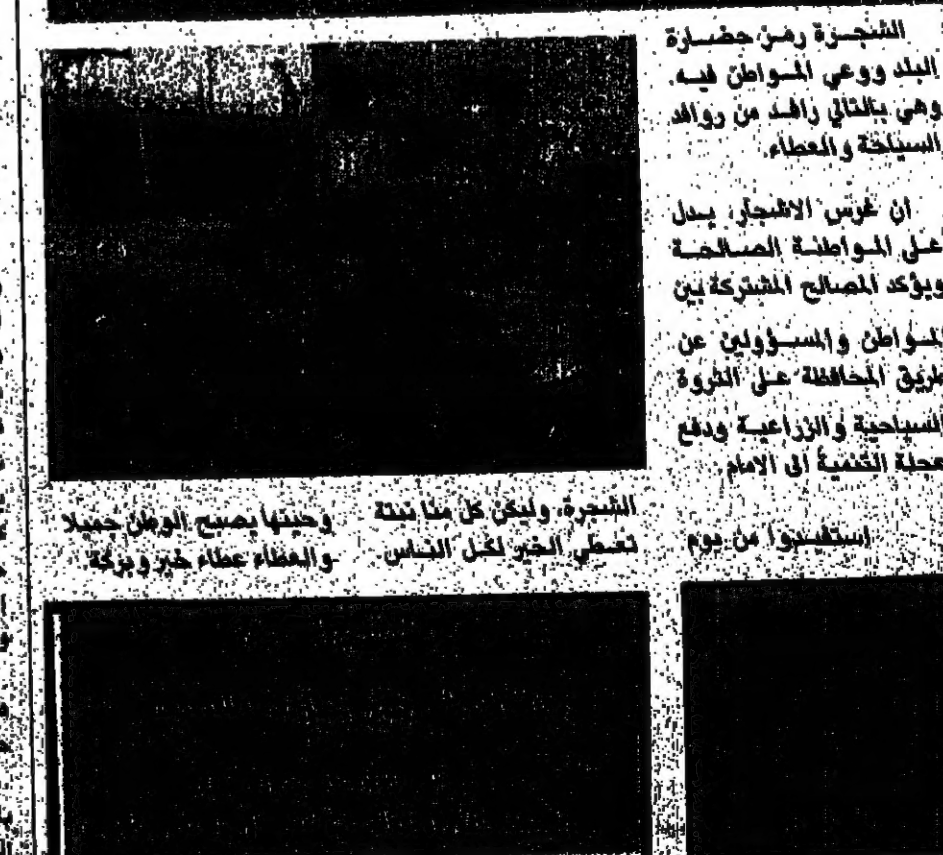 الشجرة رمز حضارة
البلد ووعي المواطن فيه.
وهي بالتالي رافد من روافد
السياحة والعطاء.
ان غرس الاشجار، يدل
على المواطنة الصالحة
ويؤكد المصالح المشتركة بين
المواطن والمسؤولين عن
طريق المحافظة على الثروة
السياحية والزراعية ودفع
عجلة التنمية الى الامام.
إستفيدوا من يوم
الشجرة، وليكن كل منا نبتة
تعطي الخير لكل الناس
وحينها يصبح الوطن جميلا
والعطاء عطاء خير وبركة